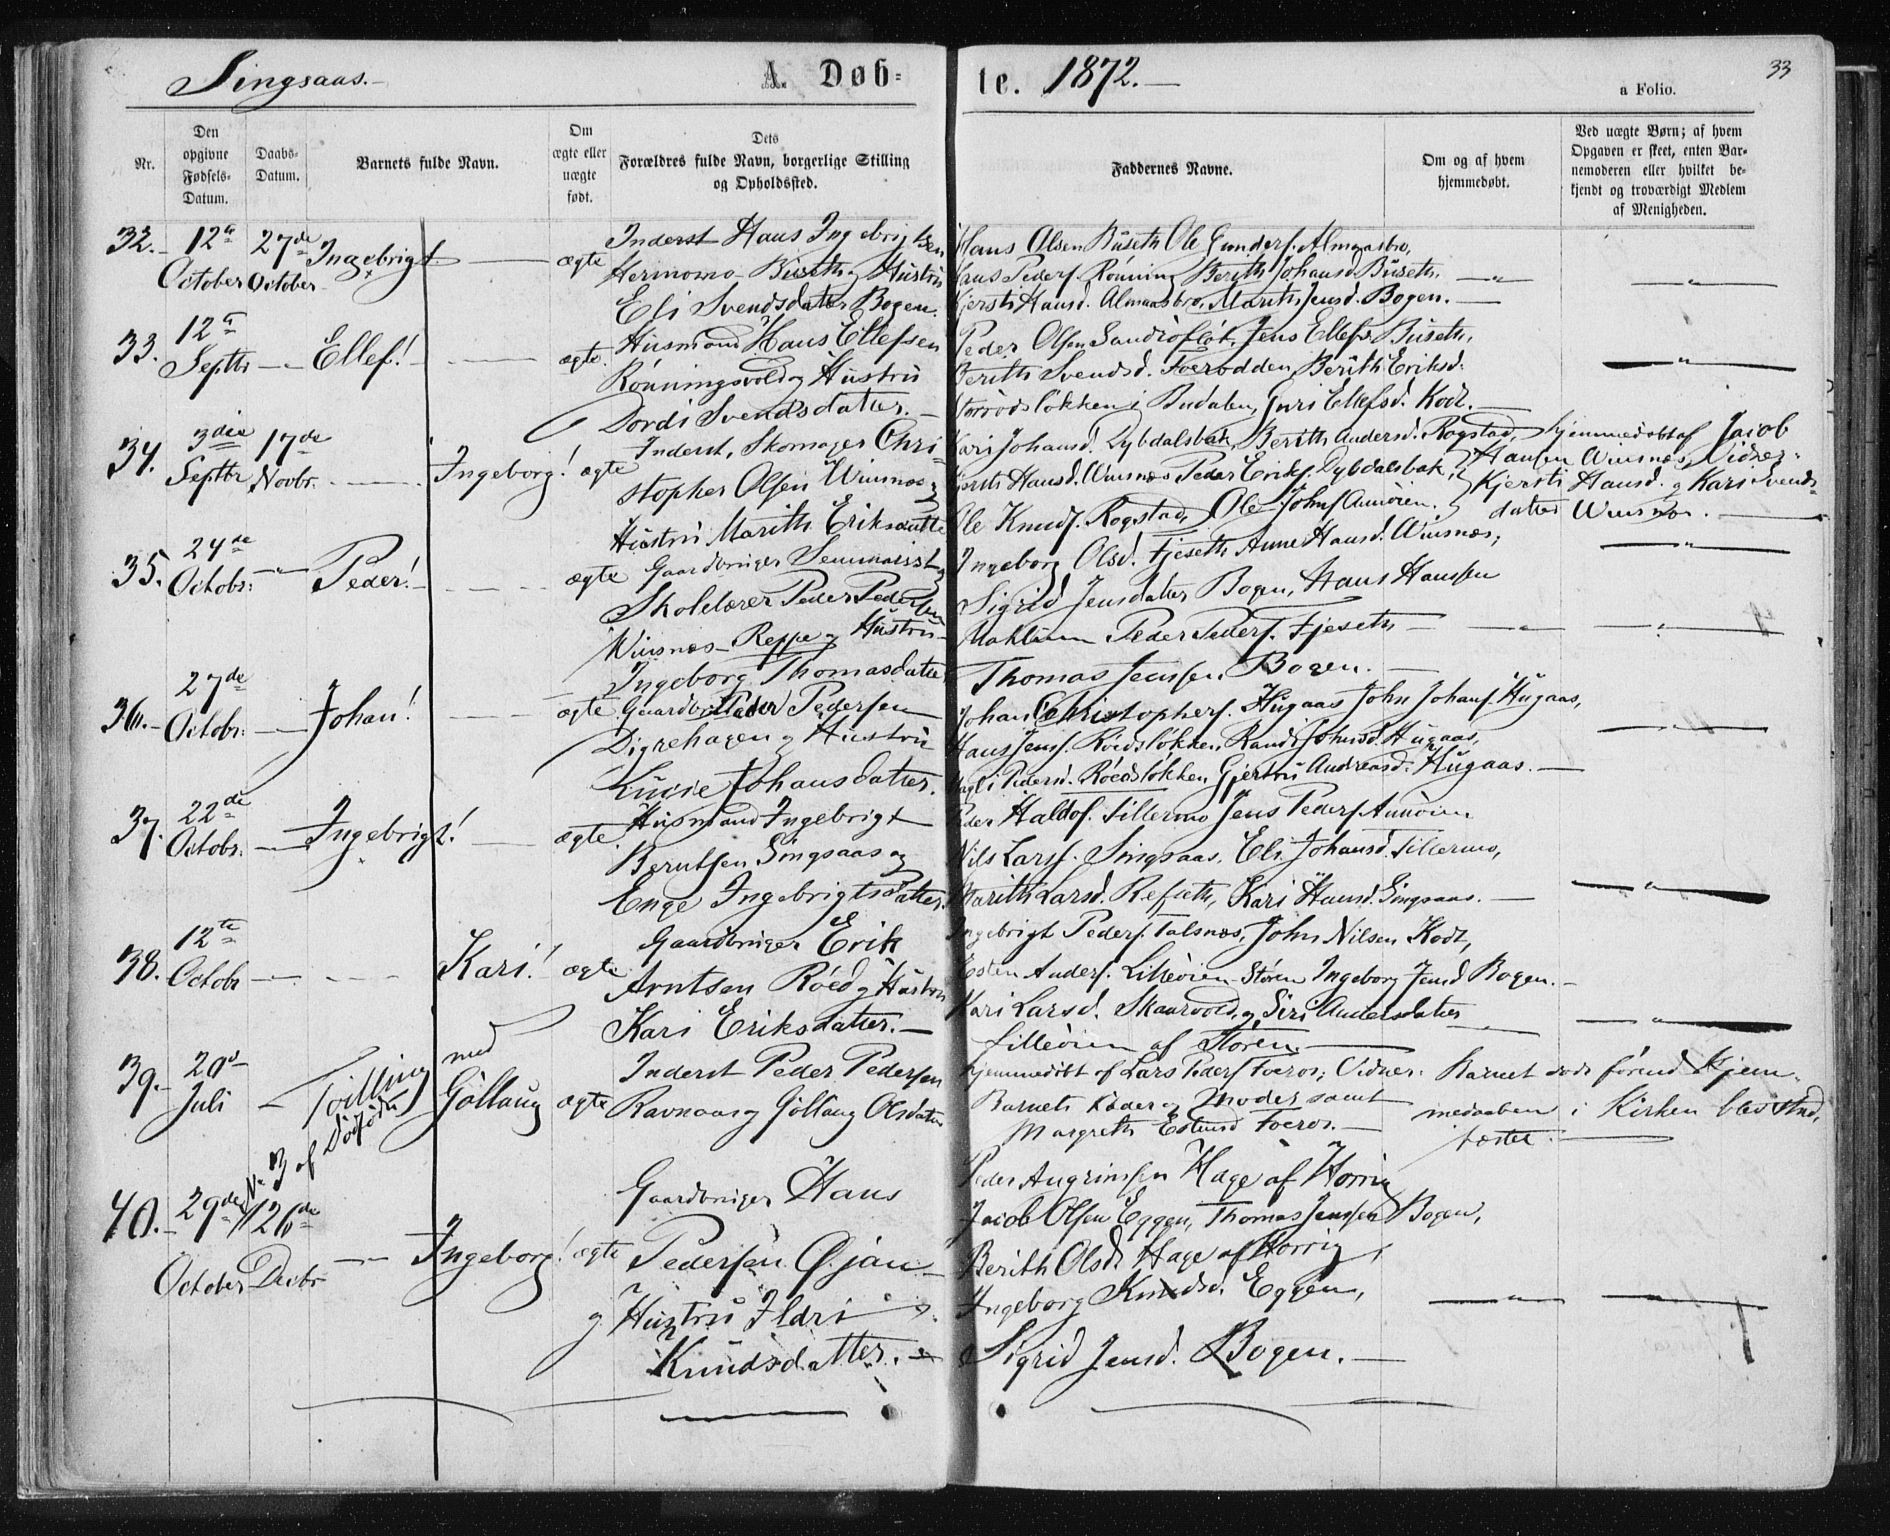 Singsaas.- A. Døb- te. 1872.- 33
a Folio.
Nr.
Den opgivne Fødsels-Datum.
Daabs-Datum.
Barnets fulde Navn.
Om ægte eller uægte født.
Dets Forældres fulde Navn, borgerlige Stilling og Opholdssted.
Faddernes Navne.
Om og af hvem hjemmedøbt.
Ved uægte Børn; af hvem Opgaven er skeet, enten Barnemoderen eller hvilket bekjendt og troværdigt Medlem af Menigheden.
32. 12te October 27de October Ingebrigt ægte
Inderst Hans Ingebrigtsen
Hermomo- Büseth og Hüstrü
Eli Svendsdatter Bogen.
Hans Olsen Büseth Ole Gunders. Almaasbro,
Hans Peders. Rönning Berith Johansd. Büseth,
Kjersti Hansd. Almaasbro, Marith Jensd. Bogen.
33. 12te Septbr Ellef! ægte.
Hüsmand Hans Ellefsen
Rönningsvold og Hüstrü
Dordi Svendsdatter.
Peder Olsen Sandröflöt, Jens Ellefs. Büseth,
Berith Svendsd. Foerodden, Berith Eriksd.
Storrödslökken i Budalen, Guri Ellefsd. Kodt.
34. 3die Septbr 17de Novbr. Ingeborg! ægte
Inderst, Skomager Chri-
stopher Olsen Winsnæs og
Hüstrü Marith Eriksdatte
Kari Johansd. Dybdalsbak, Berith Andersd. Rogstad,
Kjersti Hansd. Winsnæs Peder Eriks. Dybdalsbak,
Ole Knuds. Rogstad, Ole Johns. Aunöien.
hjemmedöbt af Jacob
Hansen Winsnæs, Vidner-
Kjersti Hansd. og Kari Svends-
datter Winsnæs.
35. 24de Octobr: Peder! ægte
Gaardbruger Seminarist og
Skolelærer Peder Pedersen
Winsnæs- Reppe og Hüstrü
Ingeborg Thomasdatter
Ingeborg Olsd. Fjeseth Anne Hansd. Winsnæs,
Sigrid Jensdatter Bogen, Hans Hanssen
Peder Peders. Fjeseth
Thomas Jenssen Bogen.
36. 27de Octobr. Johan! ægte
Gaardbr. Peder Pedersen
Digrehagen og Hüstrü
Lucie Johansdatter.
Johan Christophers. Hügaas John Johans. Hügaas,
Hans Jens. Röedslökken, Randi Johnsd. Hügaas,
Pedersd. Röedslökken, Gjertrü Andreasd. Hügaas.
37. 22de Octobr. Ingebrigt! ægte.
Hüsmand Ingebrigt
Berntsen Singsaas og
Enge Ingebrigtsdatter.
Peder Haldos. Tillermo Jens Peders. Aunöien
Nils Lars. Singsaas, Eli Johansd. Tillermo,
Marith Larsd. Refseth, Kari Hansd. Singsaas.
38. 12te Octobr Kari! ægte
Gaardbruger Erik
Arntsen Röed og Hüstrü
Kari Eriksdatter.
Ingebrigt Peders. Talsnæs, John Nilsen Kodt,
Esten Anders. Lilleöien- Stören Ingeborg Jensd. Bogen.
Kari Larsd. Skaarvold, og Siri Andersdatter
Lilleöien af Stören.
39. 20de Juli Tvilling med Göllaug ægte
No 3 af Dödfödte
Inderst Peder Pedersen
Ravnaas og Göllaug Olsdatter
hjemmedöbt af Lars Peders. Foeros; Vidner:
Barnets Fader og Moder samt
Margreth Estensd. Foeros.
Barnet döde förend Hjem-
medaaben i Kirken blev stad-
fæstet.
40. 29de October 26de Decbr Ingeborg! ægte
Gaardbruger Hans
Pedersen Öjan
og Hüstrü Ildri
Knüdsdatter.
Peder Angrimsen Hage af Horrig
Jacob Olsen Eggen, Thomas Jenssen Bogen,
Berith Olsdr Hage af Horrig,
Ingeborg Knudsd. Eggen,
Sigrid Jensd. Bogen.